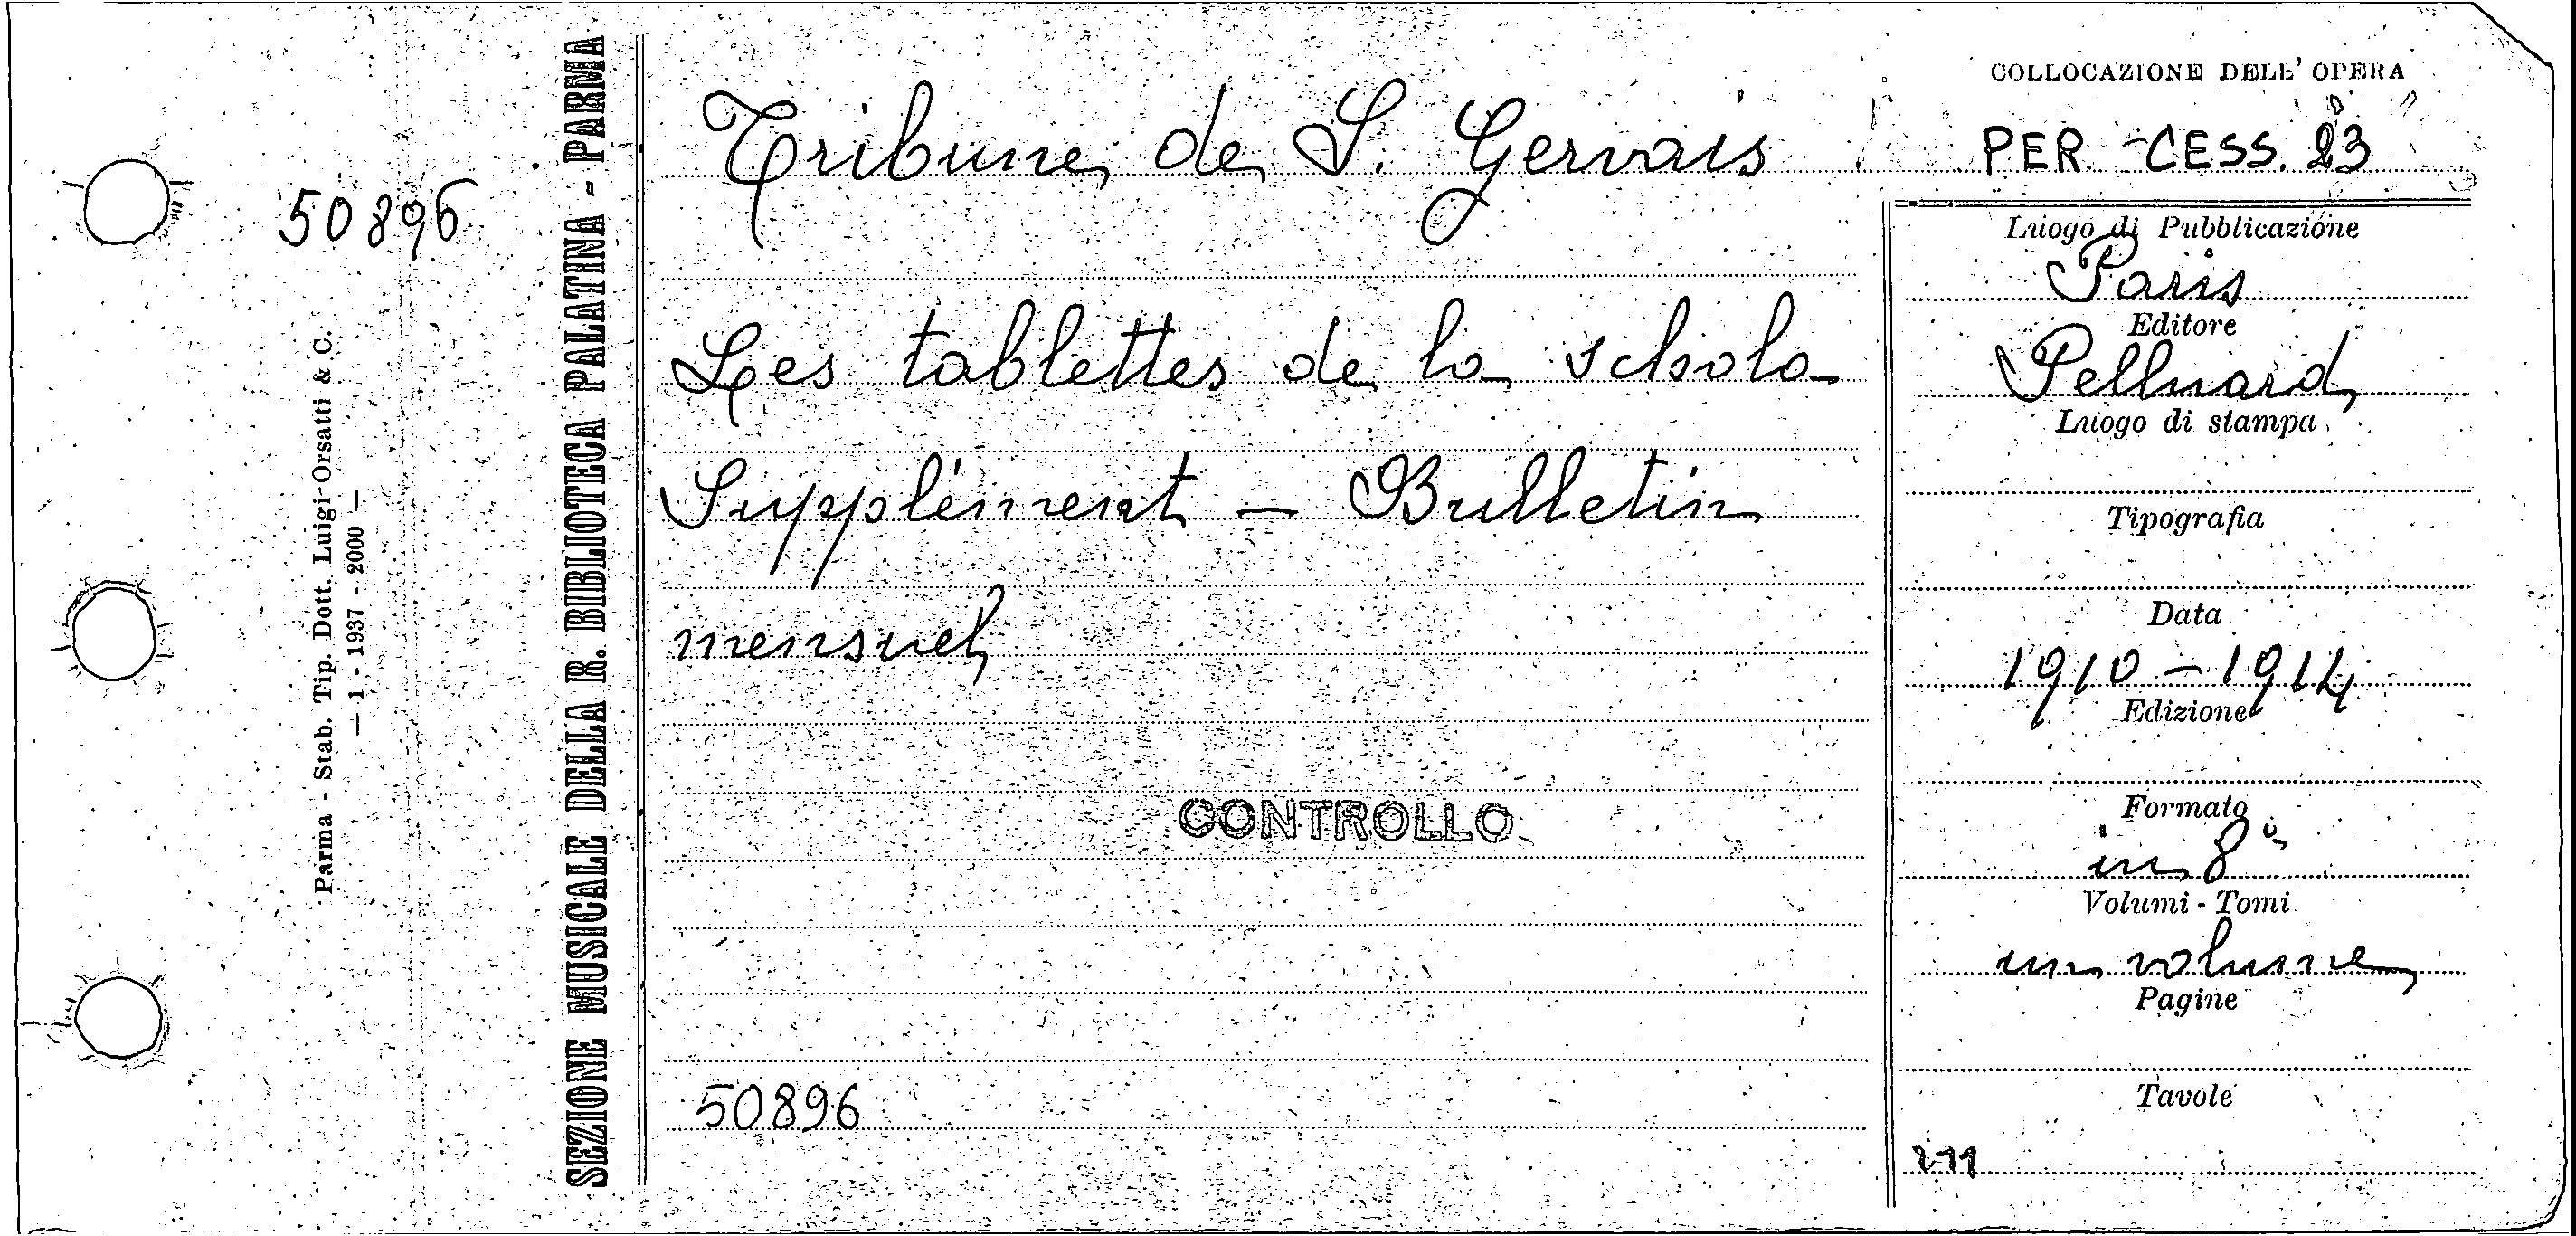 COLLOCAZIONE DELL' OPERA
PER. CESS. 23
50896
Parma - Stab. Tip. Dott. Luigi Orsatti & C.
— 1 - 1937 - 2000 —
SEZIONE MUSICALE DELLA R. BIBLIOTECA PALATINA - PARMA
Tribune de S. Gervais
Les tablettes de la schola
Supplément - Bulletin
mensuel
CONTROLLO
50896
Luogo di Pubblicazione
Paris
Editore
Luogo di stampa
Tipografia
Data
1910 - 1914
Edizione
Formato
in 8°
Volumi - Tomi
un volume
Pagine
Tavole